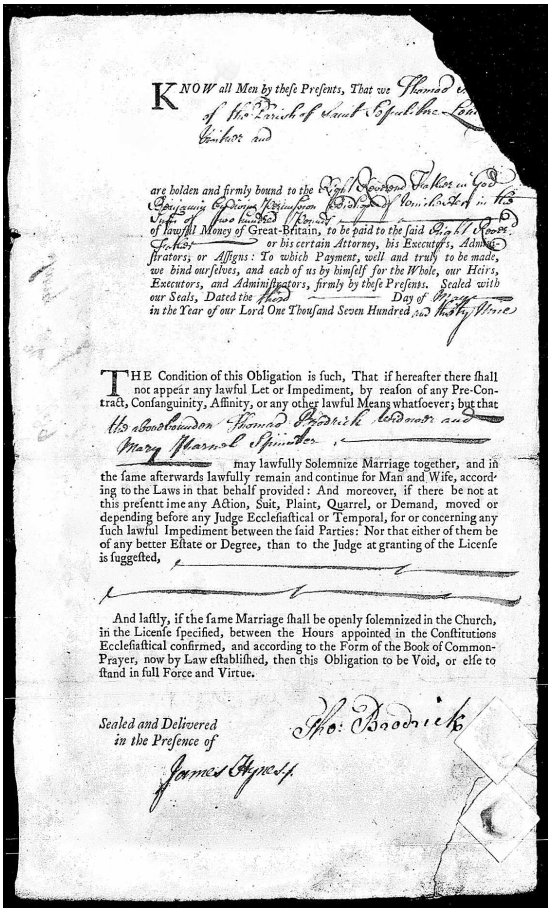 KNOW all Men by theſe Preſents, That we Thomas
of the Parish of Saint Sepulchre
and
are holden and firmly bound to the Right Reverend Father in God
Benjamin by divine Permission Bishop of Winchester in the
Summ of Two hundred Pounds
of lawful Money of Great-Britain, to be paid to the ſaid Right Revd
Father or his certain Attorney, his Executors, Admini-
ſtrators, or Aſſigns: To which Payment, well and truly to be made,
we bind ourſelves, and each of us by himſelf for the Whole, our Heirs,
Executors, and Adminiſtrators, firmly by theſe Preſents. Sealed with
our Seals, Dated the third Day of May
in the Year of our Lord One Thouſand Seven Hundred and thirty Nine
THE Condition of this Obligation is ſuch, That if hereafter there ſhall
not appear any lawful Let or Impediment, by reaſon of any Pre-Con-
tract, Conſanguinity, Affinity, or any other lawful Means whatſoever; but that
the abovebounden Thomas Brodrick Widower and
Mary Spinster
may lawfully Solemnize Marriage together, and in
the ſame afterwards lawfully remain and continue for Man and Wife, accord-
ing to the Laws in that behalf provided: And moreover, if there be not at
this preſent t ime any Action, Suit, Plaint, Quarrel, or Demand, moved or
depending before any Judge Eccleſiaſtical or Temporal, for or concerning any
ſuch lawful Impediment between the ſaid Parties: Nor that either of them be
of any better Eſtate or Degree, than to the Judge at granting of the Licenſe
is ſuggeſted,
And laſtly, if the ſame Marriage ſhall be openly ſolemnized in the Church,
in the Licenſe ſpecified, between the Hours appointed in the Conſtitutions
Eccleſiaſtical confirmed, and according to the Form of the Book of Common-
Prayer, now by Law eſtabliſhed, then this Obligation to be Void, or elſe to
ſtand in full Force and Virtue.
Sealed and Delivered
in the Preſence of
Tho: Brodrick
James Hynes